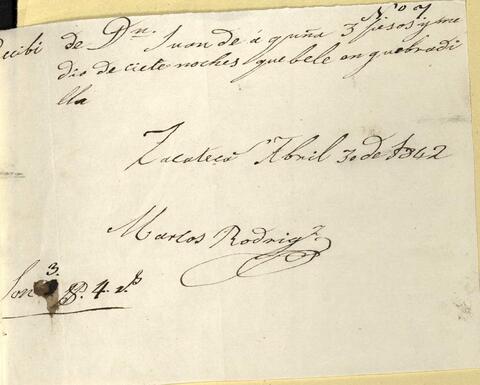 No 7
Recibi de Dn. Juan de águña 3 pesos y me
dio de ciete noches que bele en quebradi
lla
Zacatecas Abril 30 de 1842
Marcos Rodrigz
Son 3. ps. 4. rs